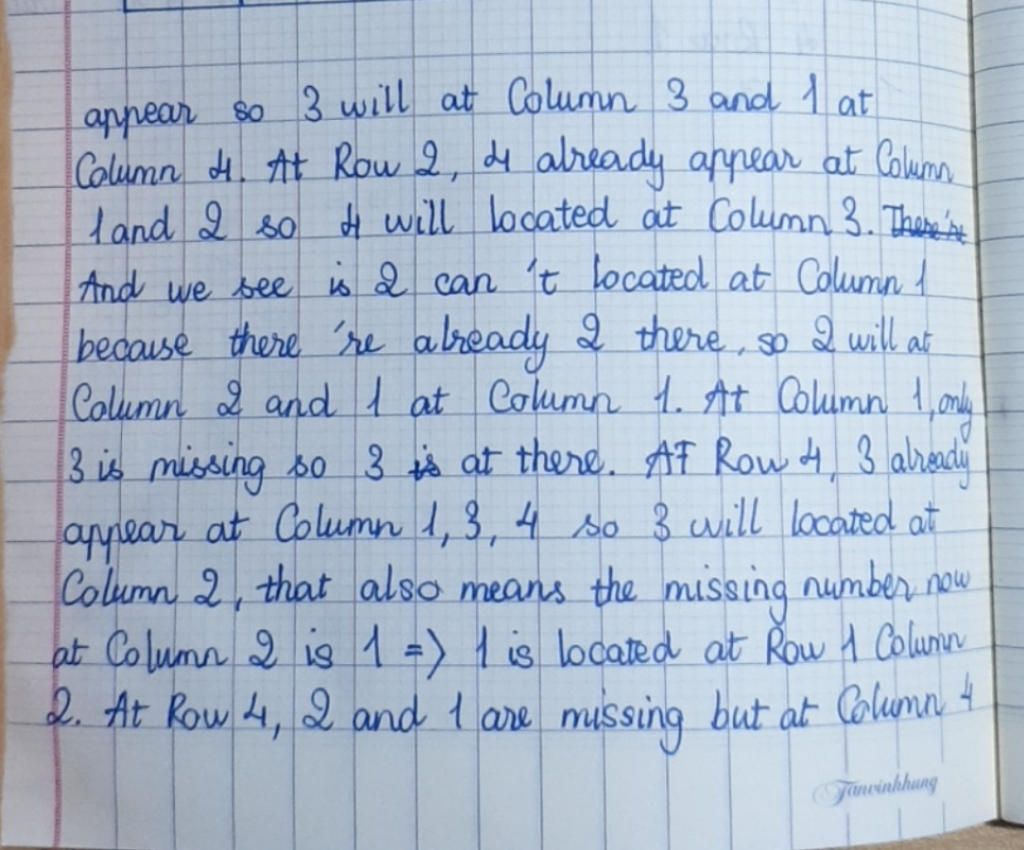 appear so 3 will at Column 3 and 1 at
Column 4. At Row 2, 4 already appear at Column
1 and 2 so 4 will located at Column 3. There're
And we see is 2 can 't located at Column 1
because there 're already 2 there, so 2 will at
Column 2 and 1 at Column 1. At Column 1, only
3 is missing so 3 is at there. AT Row 4, 3 already
appear at Column 1, 3, 4 so 3 will located at
Column 2, that also means the missing number now
at Column 2 is 1 => 1 is located at Row 1 Column
2. At Row 4, 2 and 1 are missing but at Column 4
Tanvinhhung